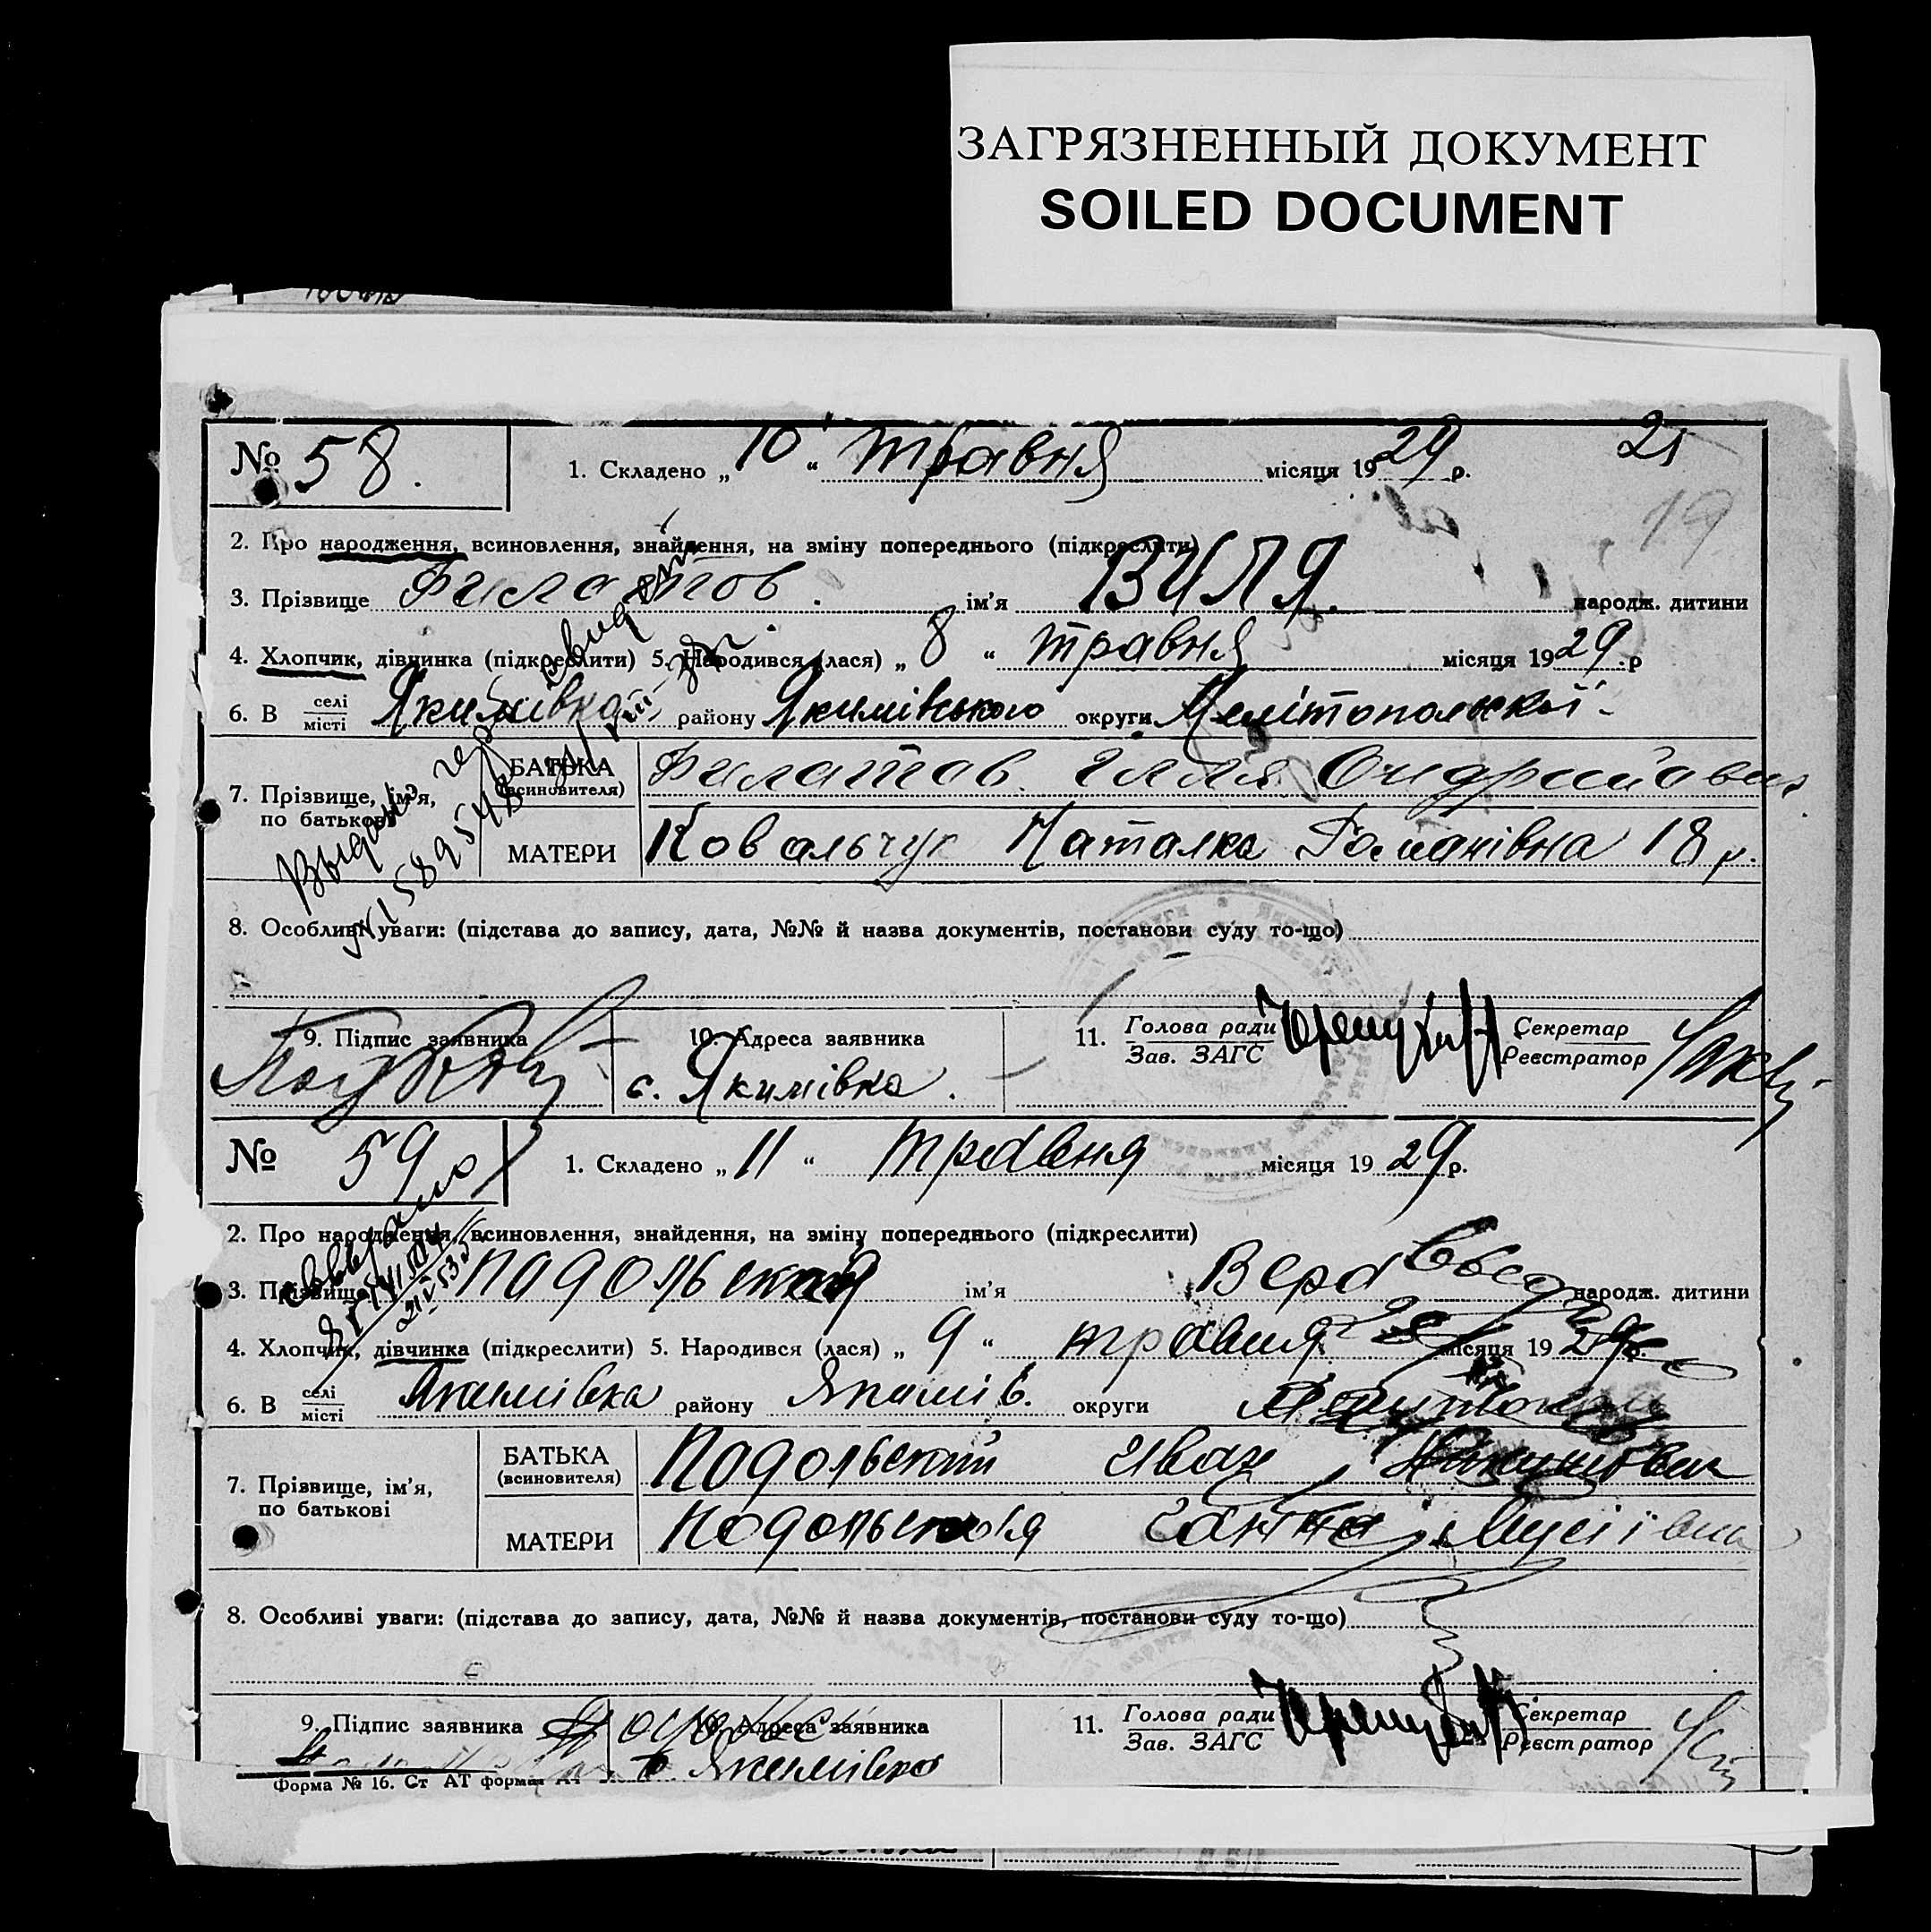 ЗАГРЯЗНЕННЫЙ ДОКУМЕНТ
SOILED DOCUMENT
№ 58. 1. Складено „10“ травня місяця 1929 р. 21
19
2. Про народження, всиновлення, знайдення, на зміну попереднього (підкреслити)
3. Прізвище Филатов. ім'я Виля. народж. дитини
4. Хлопчик, дівчинка (підкреслити) 5. Народився (лася) „8“ травня місяця 1929 р
6. В селі/місті Якимівка району Якимівського округи Мелітопольскої
7. Прізвище, ім'я, по батькові БАТЬКА (всиновителя) Филатов Ілля Ондрийович
МАТЕРИ Ковальчук Наталка Романівна 18 р.
8. Особливі уваги: (підстава до запису, дата, №№ й назва документів, постанови суду то-що)
9. Підпис заявника 10. Адреса заявника 11. Голова ради/Зав. ЗАГС Секретар/Реєстратор
с. Якимівка.
№ 59 1. Складено „11“ травня місяця 1929 р.
2. Про народження, всиновлення, знайдення, на зміну попереднього (підкреслити)
3. Прізвище Падольская ім'я Вера народж. дитини
4. Хлопчик, дівчинка (підкреслити) 5. Народився (лася) „9“ травня місяця 1929 р.
6. В селі/місті Якимівка району Якимів. округи
7. Прізвище, ім'я, по батькові БАТЬКА (всиновителя) Падольский Иван
МАТЕРИ Подольская Ганна Мусіївна
8. Особливі уваги: (підстава до запису, дата, №№ й назва документів, постанови суду то-що)
9. Підпис заявника 10. Адреса заявника 11. Голова ради/Зав. ЗАГС Секретар/Реєстратор
с. Якимівка
Форма № 16. Ст АТ форма